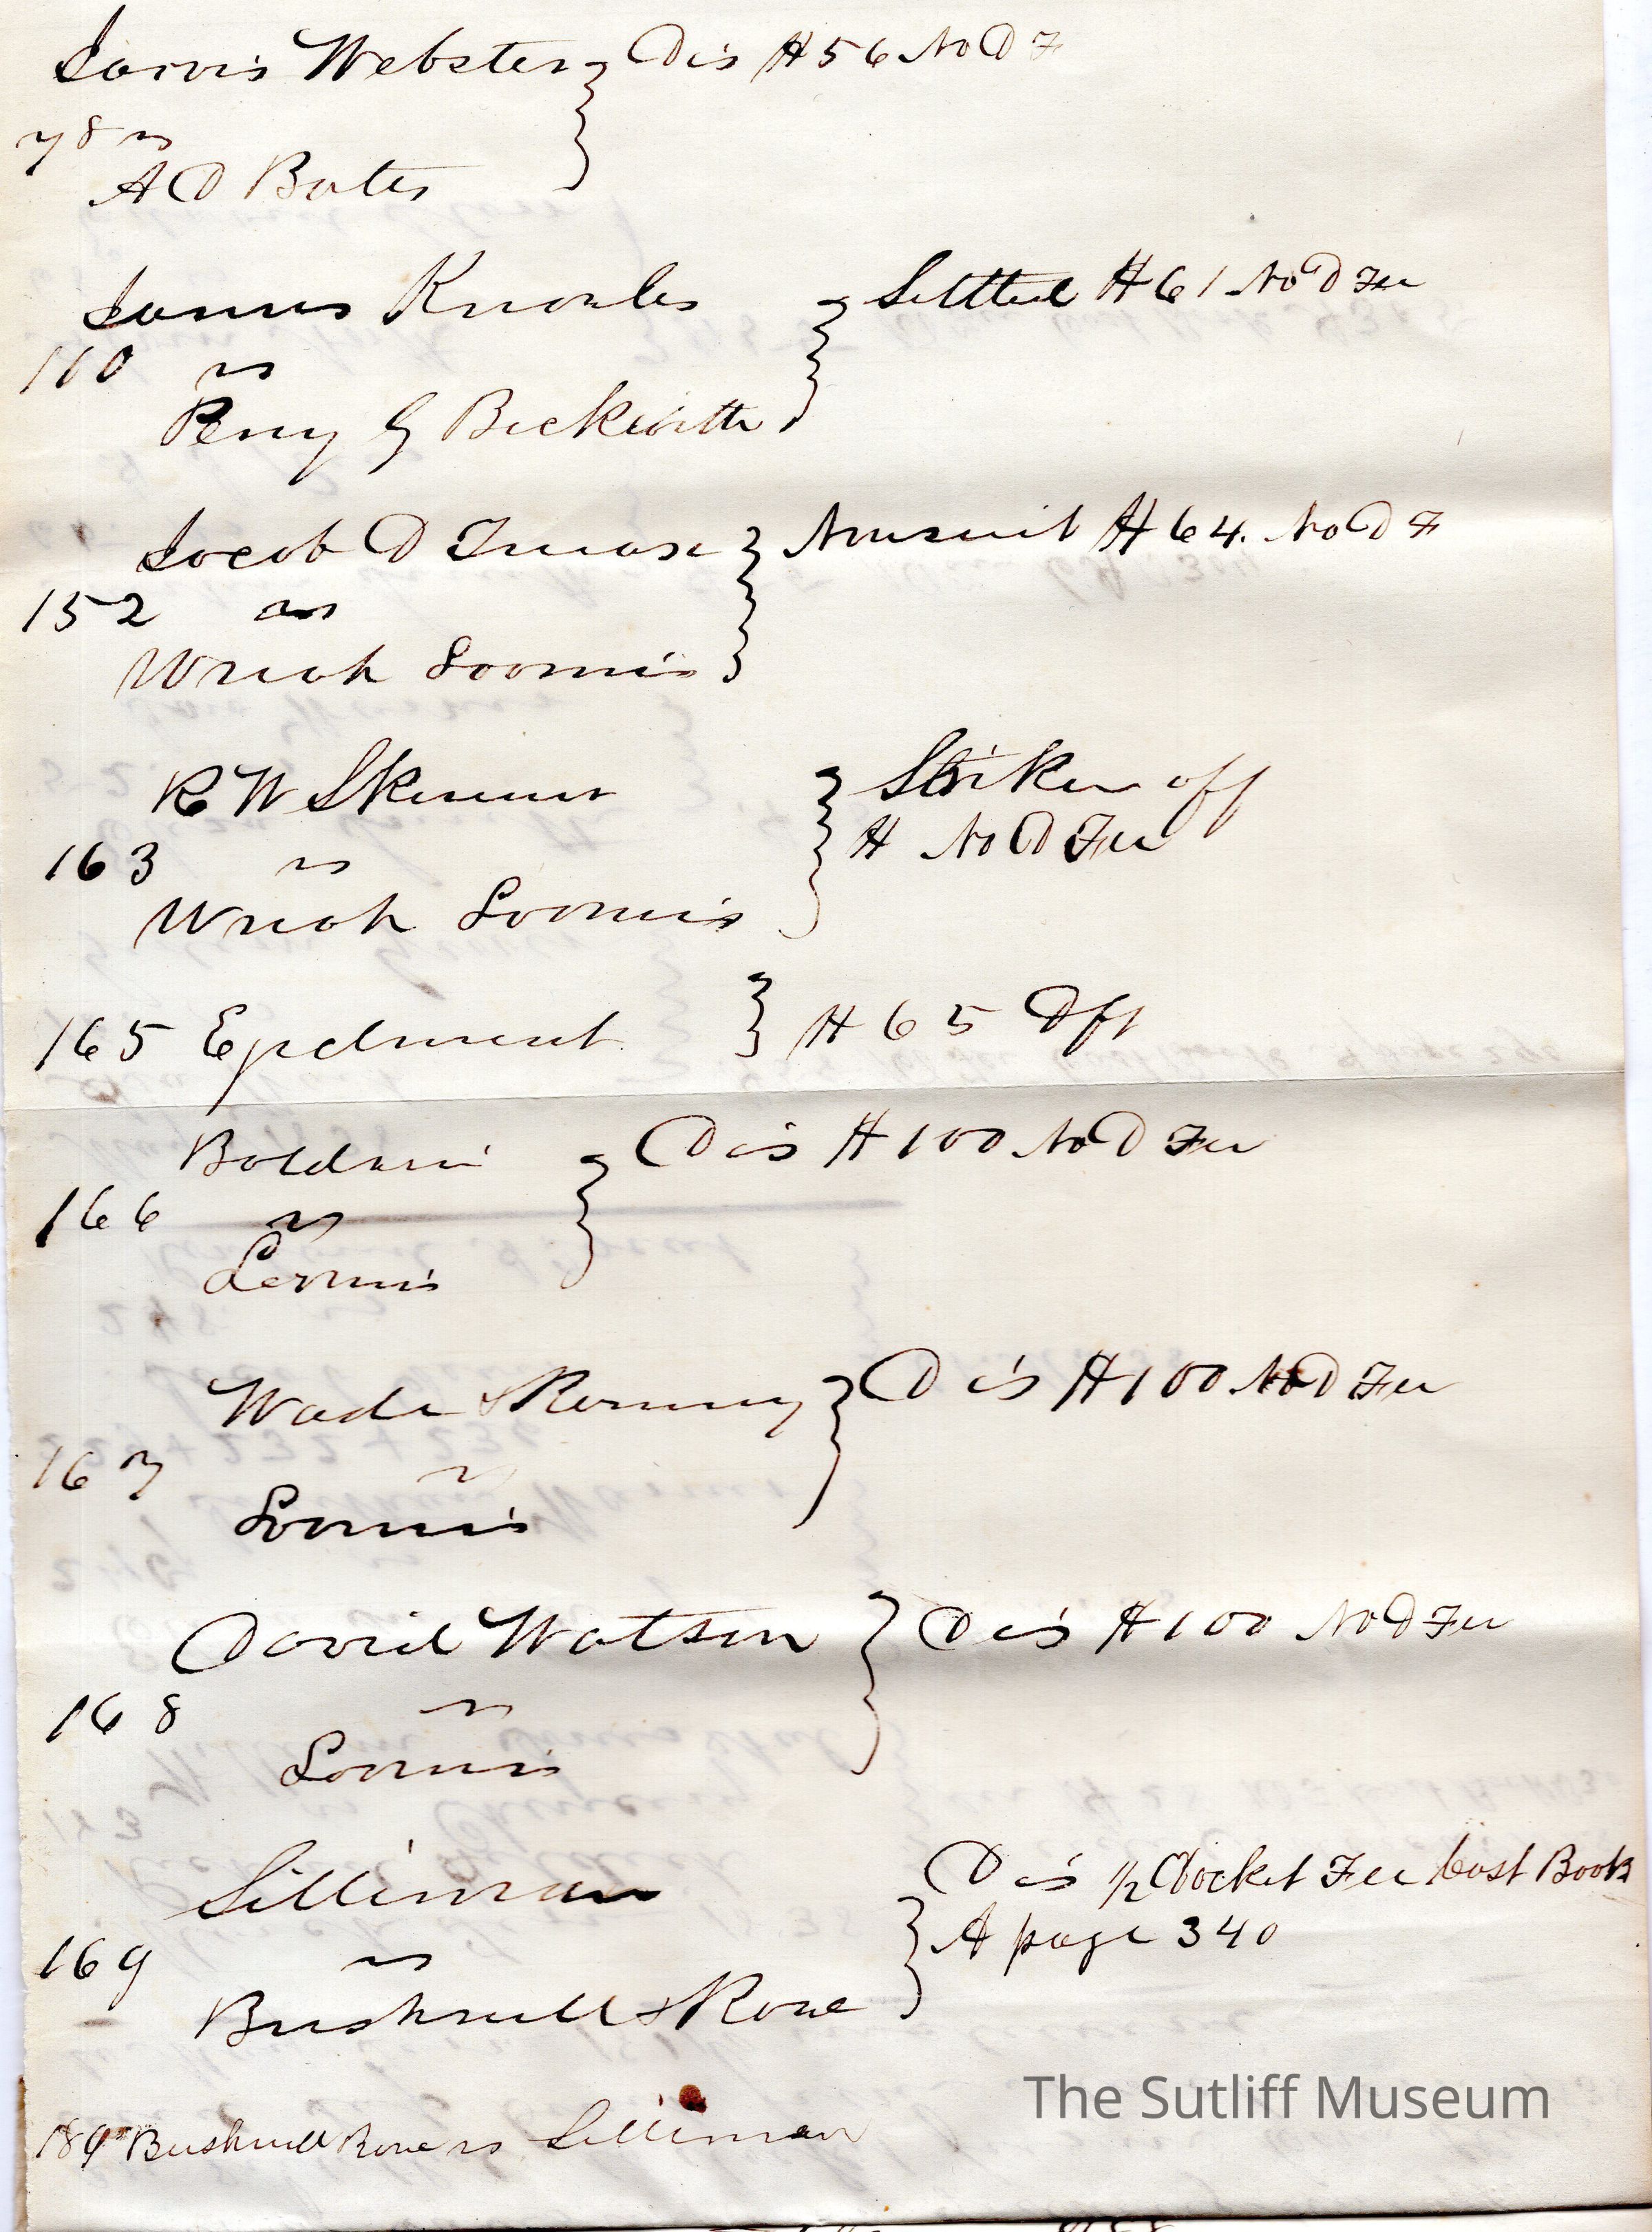 Jarvis Webster } Dis H 56 No D F
78 vs
A D Bates
James Knowles } Settled H 61 No D Fee
110 vs
Perry G Beckwith
Jacob D } Nonsuit H 64. No D F
152 vs
Uriah Loomis
R W Skinner } Striken off
H No D Fee
163 vs
Uriah Loomis
165 Ejectment } H 65 Dft
Baldwin } Dis H 100 No D Fee
166 vs
Loomis
Wade & } Dis H 100 No D Fee
167 vs
Loomis
David Watson } Dis H 100 No D Fee
168 vs
Loomis
Silliman } Dis 1/2 Docket Fee Cost Book
A page 340
169 vs
Bushnell & Rowe
189 Bushnell Rowe vs Silliman
The Sutliff Museum